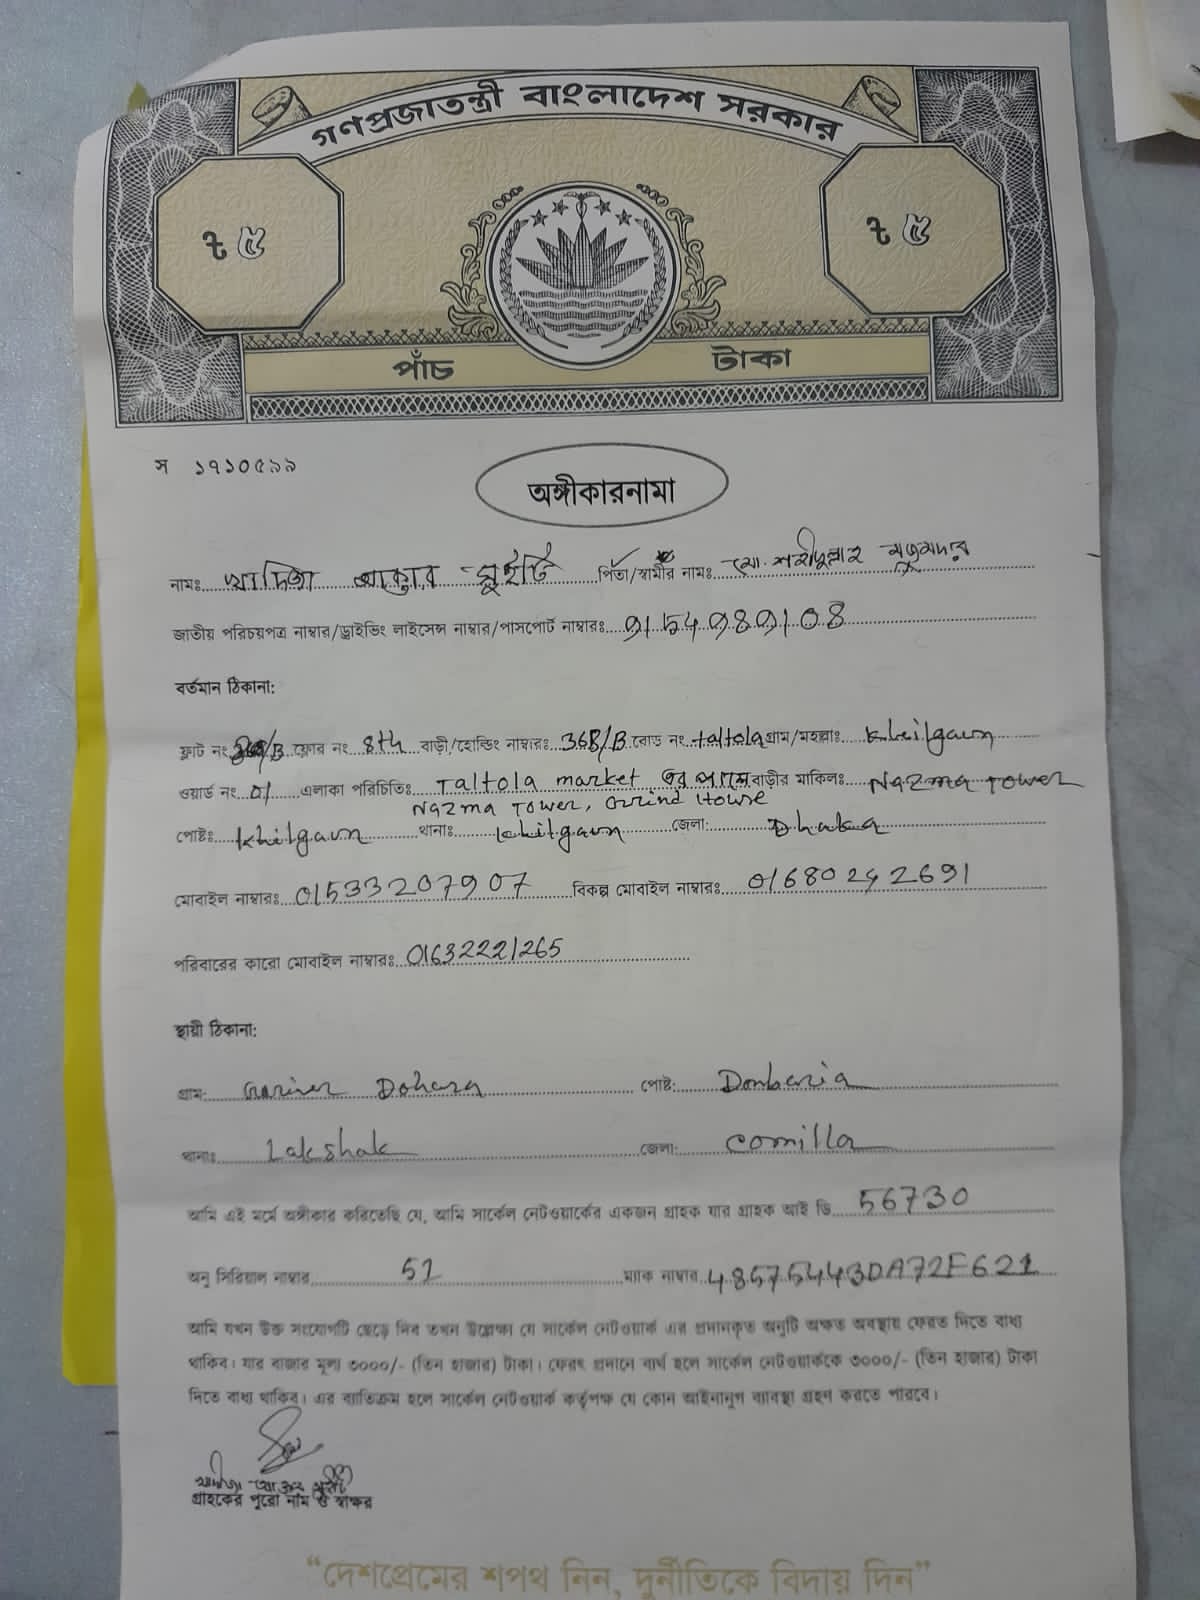 গণপ্রজাতন্ত্রী বাংলাদেশ সরকার
৳ ৫ ৳ ৫
পাঁচ টাকা
স ১৭১০৫৯৯
অঙ্গীকারনামা
নামঃ খাদিজা আক্তার সুইটি পিতা/স্বামীর নামঃ মো. শহীদুল্লাহ মজুমদার
জাতীয় পরিচয়পত্র নাম্বার/ড্রাইভিং লাইসেন্স নাম্বার/পাসপোর্ট নাম্বারঃ
বর্তমান ঠিকানা:
ফ্লাট নং ফ্লোর নং 8th বাড়ী/হোল্ডিং নাম্বারঃ 368/B রোড নং taltola গ্রাম/মহল্লাঃ Khilgaun
ওয়ার্ড নং 01 এলাকা পরিচিতিঃ Taltola market এর পাশে বাড়ীর মালিকঃ Nazma Tower
Nazma Tower, House
পোষ্টঃ Khilgaun থানাঃ Khilgaun জেলা: Dhaka
মোবাইল নাম্বারঃ 01533207907 বিকল্প মোবাইল নাম্বারঃ 01680242691
পরিবারের কারো মোবাইল নাম্বারঃ 01632221265
স্থায়ী ঠিকানা:
গ্রাম: পোষ্ট:
থানাঃ Lakshak জেলা: Comilla
আমি এই মর্মে অঙ্গীকার করিতেছি যে, আমি সার্কেল নেটওয়ার্কের একজন গ্রাহক যার গ্রাহক আই ডি 56730
অনু সিরিয়াল নাম্বার 51 ম্যাক নাম্বার 48575443DA72F621
আমি যখন উক্ত সংযোগটি ছেড়ে দিব তখন উল্লেক্ষ্য যে সার্কেল নেটওয়ার্ক এর প্রদানকৃত অনুটি অক্ষত অবস্থায় ফেরত দিতে বাধ্য
থাকিব। যার বাজার মূল্য ৩০০০/- (তিন হাজার) টাকা। ফেরৎ প্রদানে ব্যর্থ হলে সার্কেল নেটওয়ার্ককে ৩০০০/- (তিন হাজার) টাকা
দিতে বাধ্য থাকিব। এর ব্যতিক্রম হলে সার্কেল নেটওয়ার্ক কর্তৃপক্ষ যে কোন আইনানুগ ব্যাবস্থা গ্রহণ করতে পারবে।
গ্রাহকের পুরো নাম ও স্বাক্ষর
“দেশপ্রেমের শপথ নিন, দুর্নীতিকে বিদায় দিন”